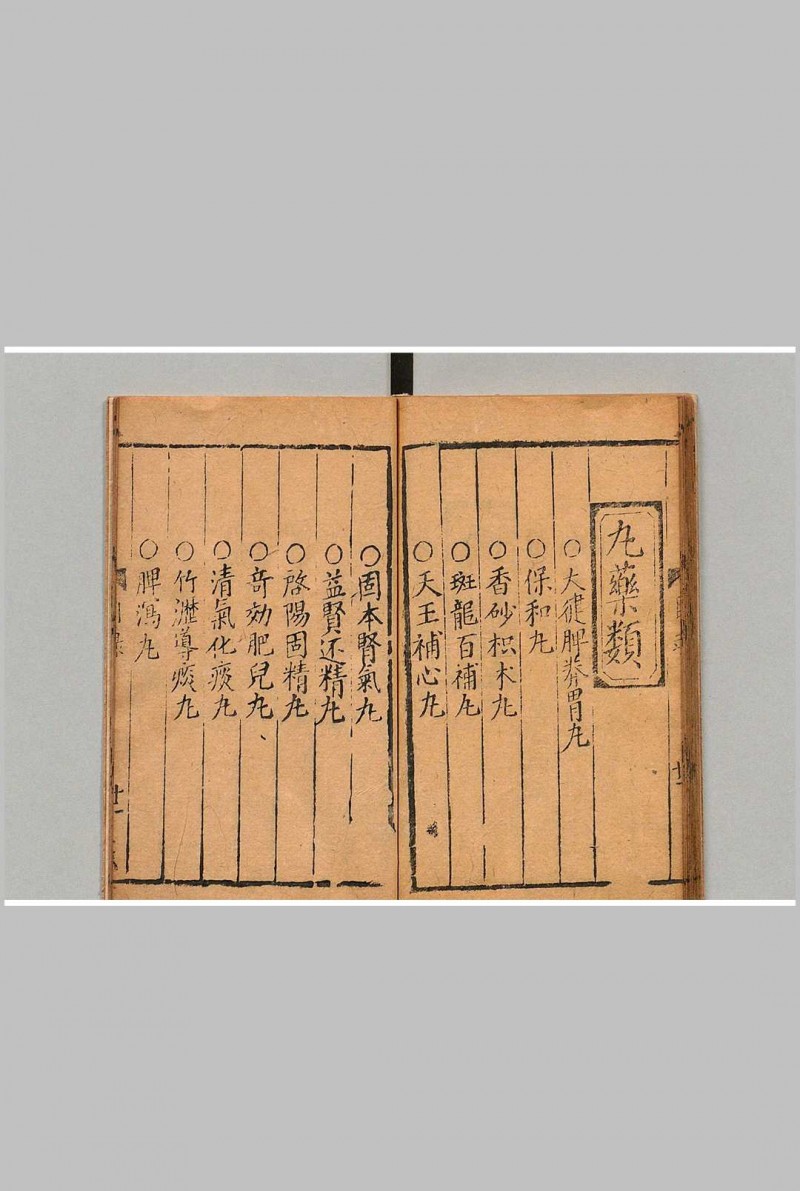 丸藥類
○大健脾養胃丸
○保和丸
○香砂枳朮丸
○斑龍百補丸
○天王補心丸
○固本腎氣丸
○益腎还精丸
○啓陽固精丸
○奇効肥兒丸
○清氣化痰丸
○竹瀝導痰丸
○脾瀉丸
廿一